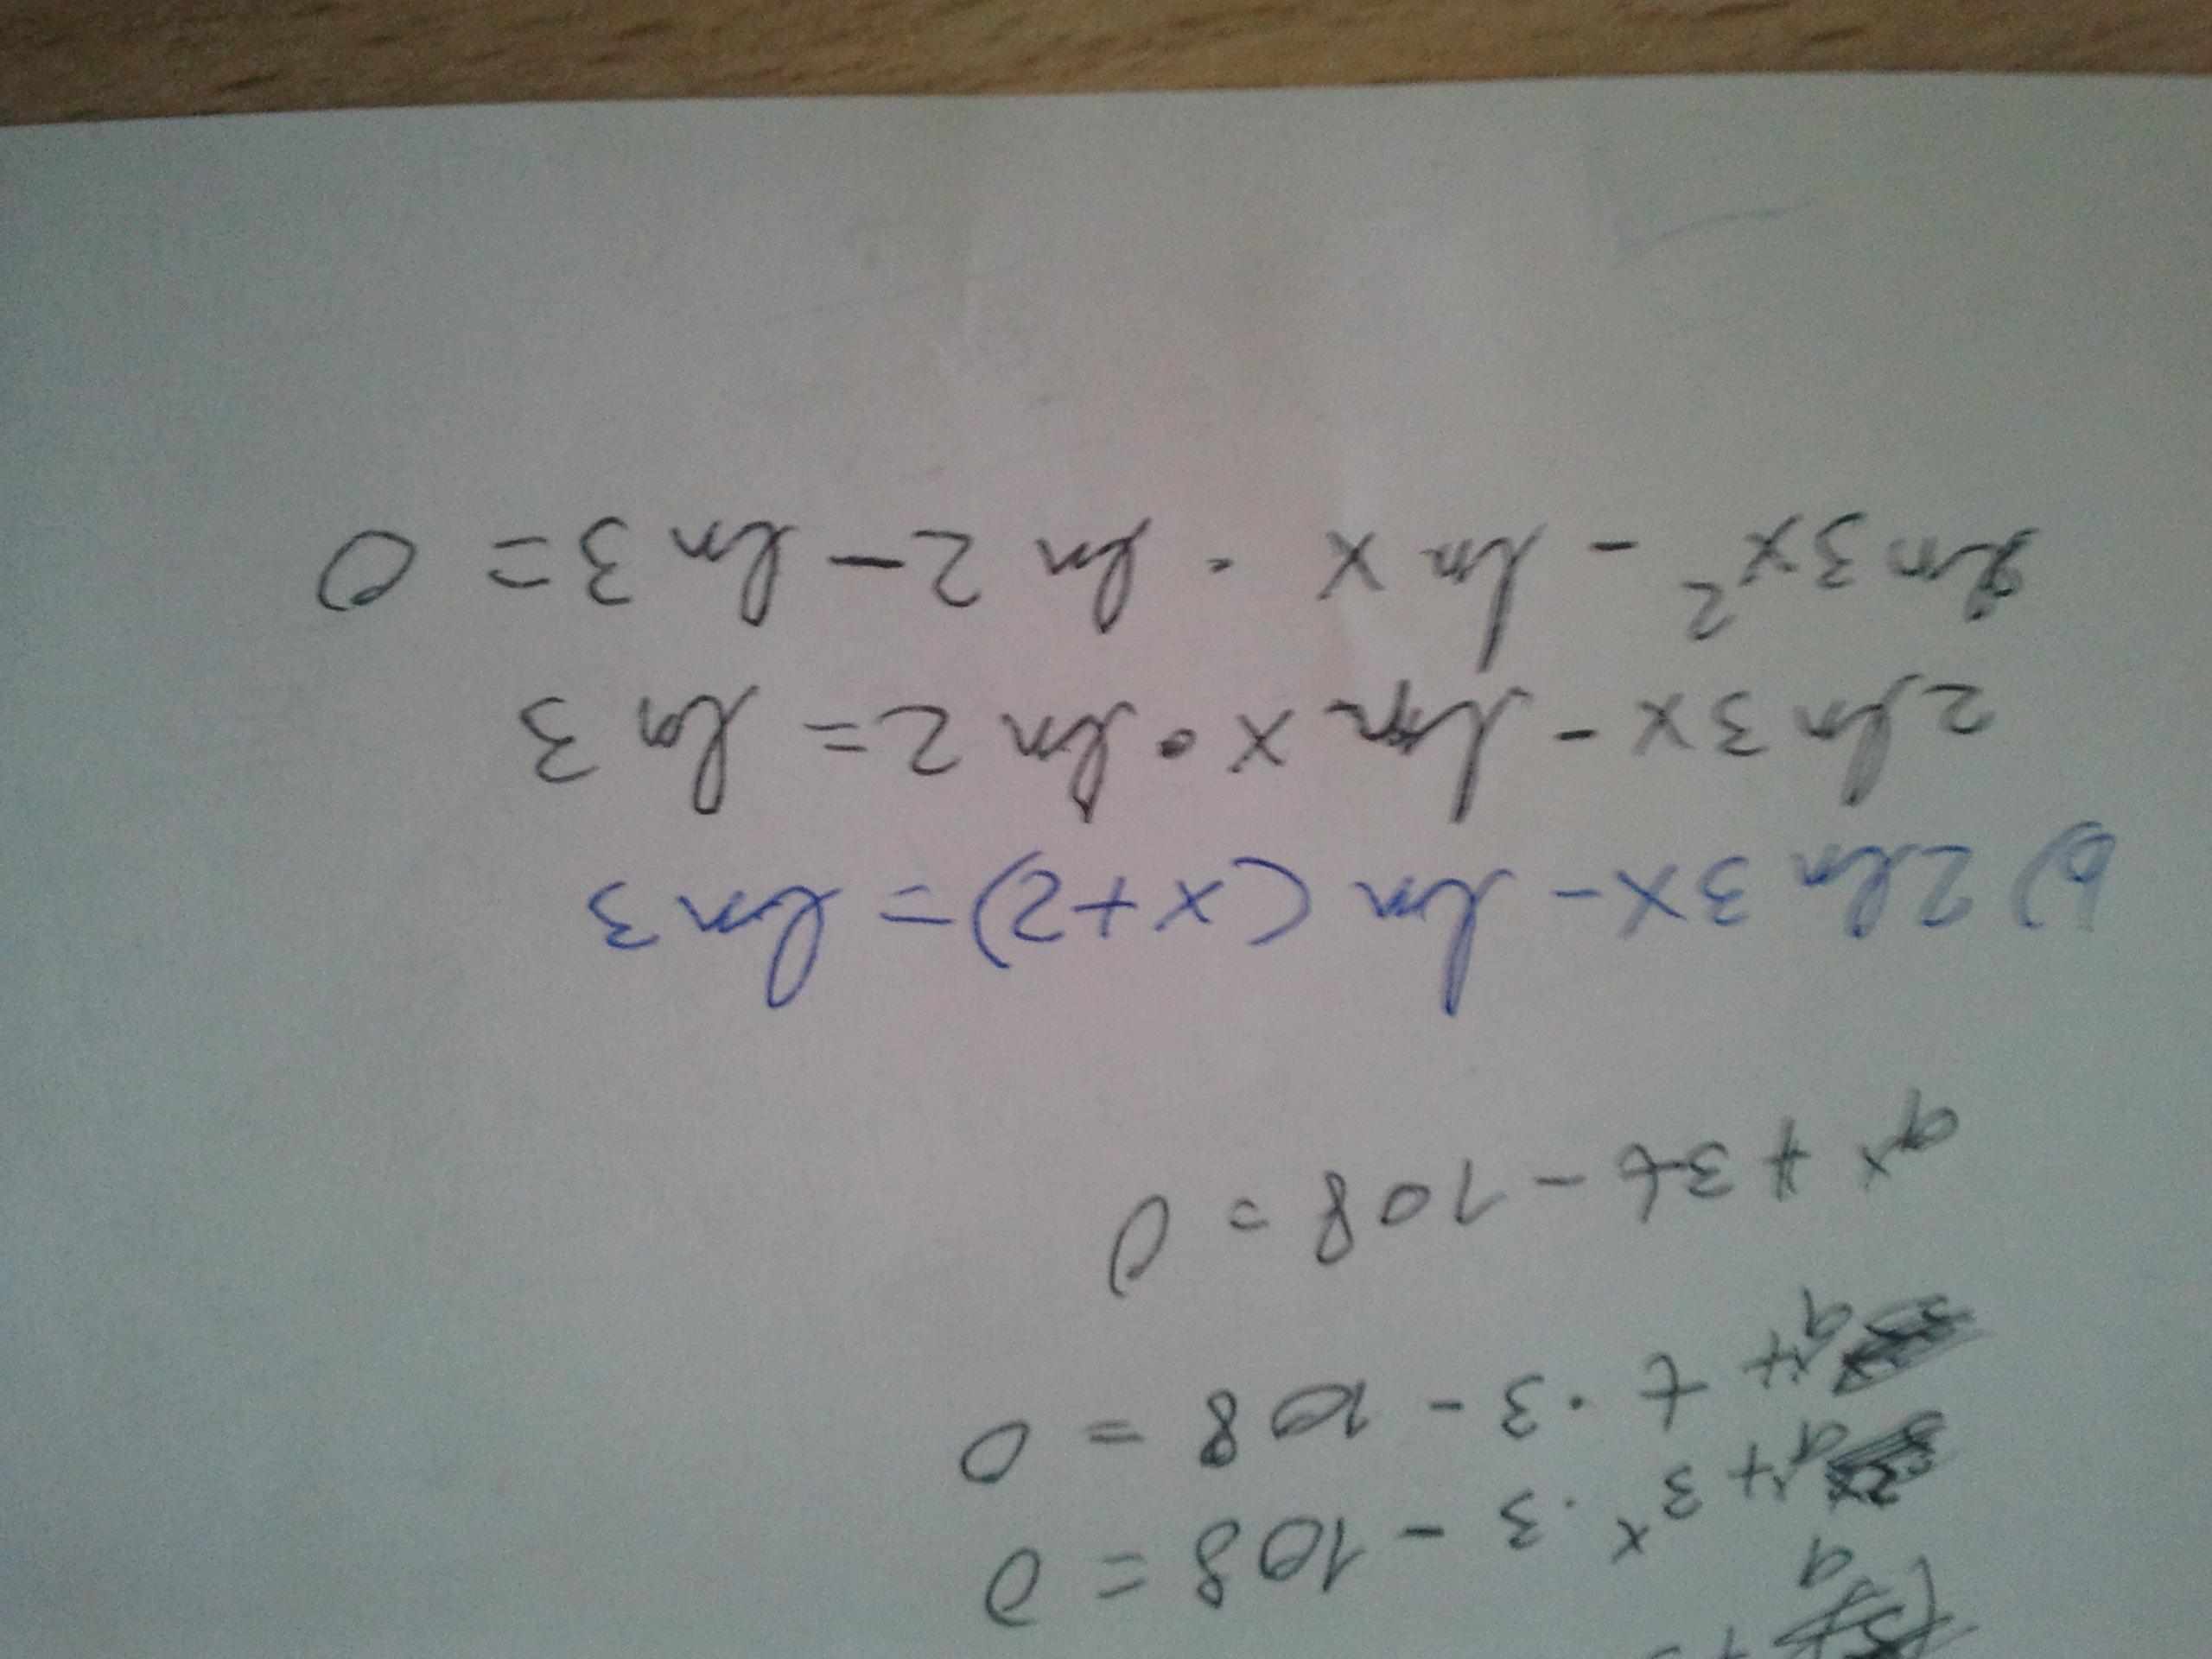 9^x + 3^x · 3 - 108 = 0
9^x + t · 3 - 108 = 0
9^x + 3t - 108 = 0
b) 2 ln 3x - ln (x+2) = ln 3
2 ln 3x - ln x • ln 2 = ln 3
ln 3x² - ln x · ln 2 - ln 3 = 0